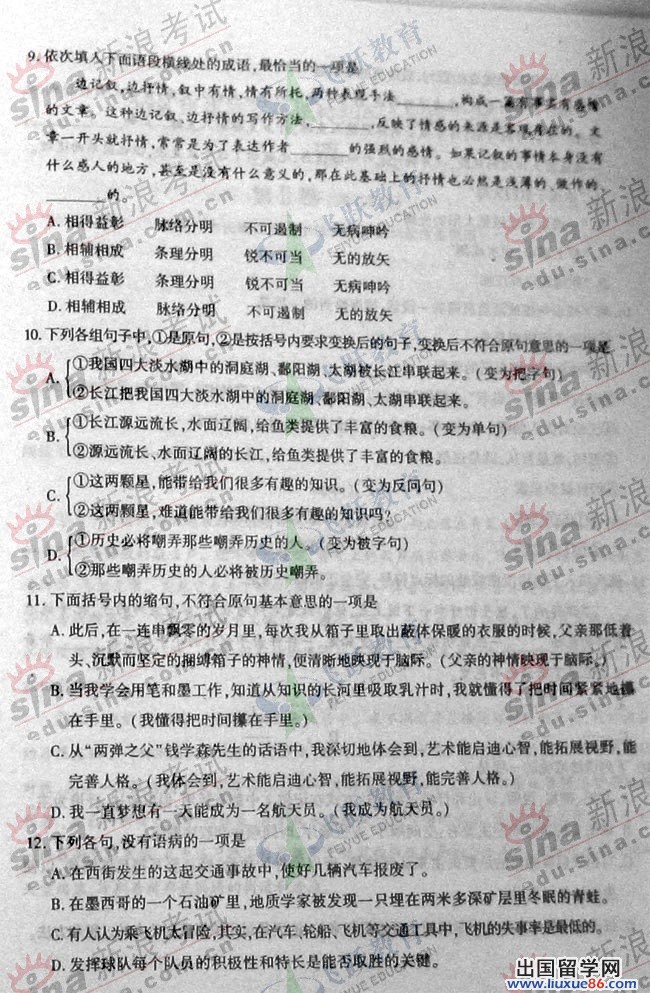 9. 依次填入下面语段横线处的成语,最恰当的一项是
边记叙,边抒情,叙中有情,情有所托,两种表现手法________,构成一篇有事实有感情
的文章。这种边记叙、边抒情的写作方法,________,反映了情感的来源是客观存在的。文
章一开头就抒情,常常是为了表达作者________的强烈的感情。如果记叙的事情本身没有
什么感人的地方,甚至是没有什么意义的,那在此基础上的抒情也必然是浅薄的、做作的
________的。
A. 相得益彰 脉络分明 不可遏制 无病呻吟
B. 相辅相成 条理分明 锐不可当 无的放矢
C. 相得益彰 条理分明 锐不可当 无病呻吟
D. 相辅相成 脉络分明 不可遏制 无的放矢
10. 下列各组句子中,①是原句,②是按括号内要求变换后的句子,变换后不符合原句意思的一项是
A. ①我国四大淡水湖中的洞庭湖、鄱阳湖、太湖被长江串联起来。(变为把字句)
②长江把我国四大淡水湖中的洞庭湖、鄱阳湖、太湖串联起来。
B. ①长江源远流长、水面辽阔,给鱼类提供了丰富的食粮。(变为单句)
②源远流长、水面辽阔的长江,给鱼类提供了丰富的食粮。
C. ①这两颗星,能带给我们很多有趣的知识。(变为反问句)
②这两颗星,难道能带给我们很多有趣的知识吗?
D. ①历史必将嘲弄那些嘲弄历史的人。(变为被字句)
②那些嘲弄历史的人必将被历史嘲弄。
11. 下面括号内的缩句,不符合原句基本意思的一项是
A. 此后,在一连串飘零的岁月里,每次我从箱子里取出蔽体保暖的衣服的时候,父亲那低着
头、沉默而坚定的捆缚箱子的神情,便清晰地映现于脑际。(父亲的神情映现于脑际。)
B. 当我学会用笔和墨工作,知道从知识的长河里吸取乳汁时,我就懂得了把时间紧紧地攥
在手里。(我懂得把时间攥在手里。)
C. 从“两弹之父”钱学森先生的话语中,我深切地体会到,艺术能启迪心智,能拓展视野,能
完善人格。(我体会到,艺术能启迪心智,能拓展视野,能完善人格。)
D. 我一直梦想有一天能成为一名航天员。(我成为航天员。)
12. 下列各句,没有语病的一项是
A. 在西街发生的这起交通事故中,使好几辆汽车报废了。
B. 在墨西哥的一个石油矿里,地质学家被发现一只埋在两米多深矿层里冬眠的青蛙。
C. 有人认为乘飞机太冒险,其实,在汽车、轮船、飞机等交通工具中,飞机的失事率是最低的。
D. 发挥球队每个队员的积极性和特长是能否取胜的关键。
新浪考试
sina
edu.sina.com.cn
飞跃教育
FEIYUE EDUCATION
出国留学网
www.liuxue86.com